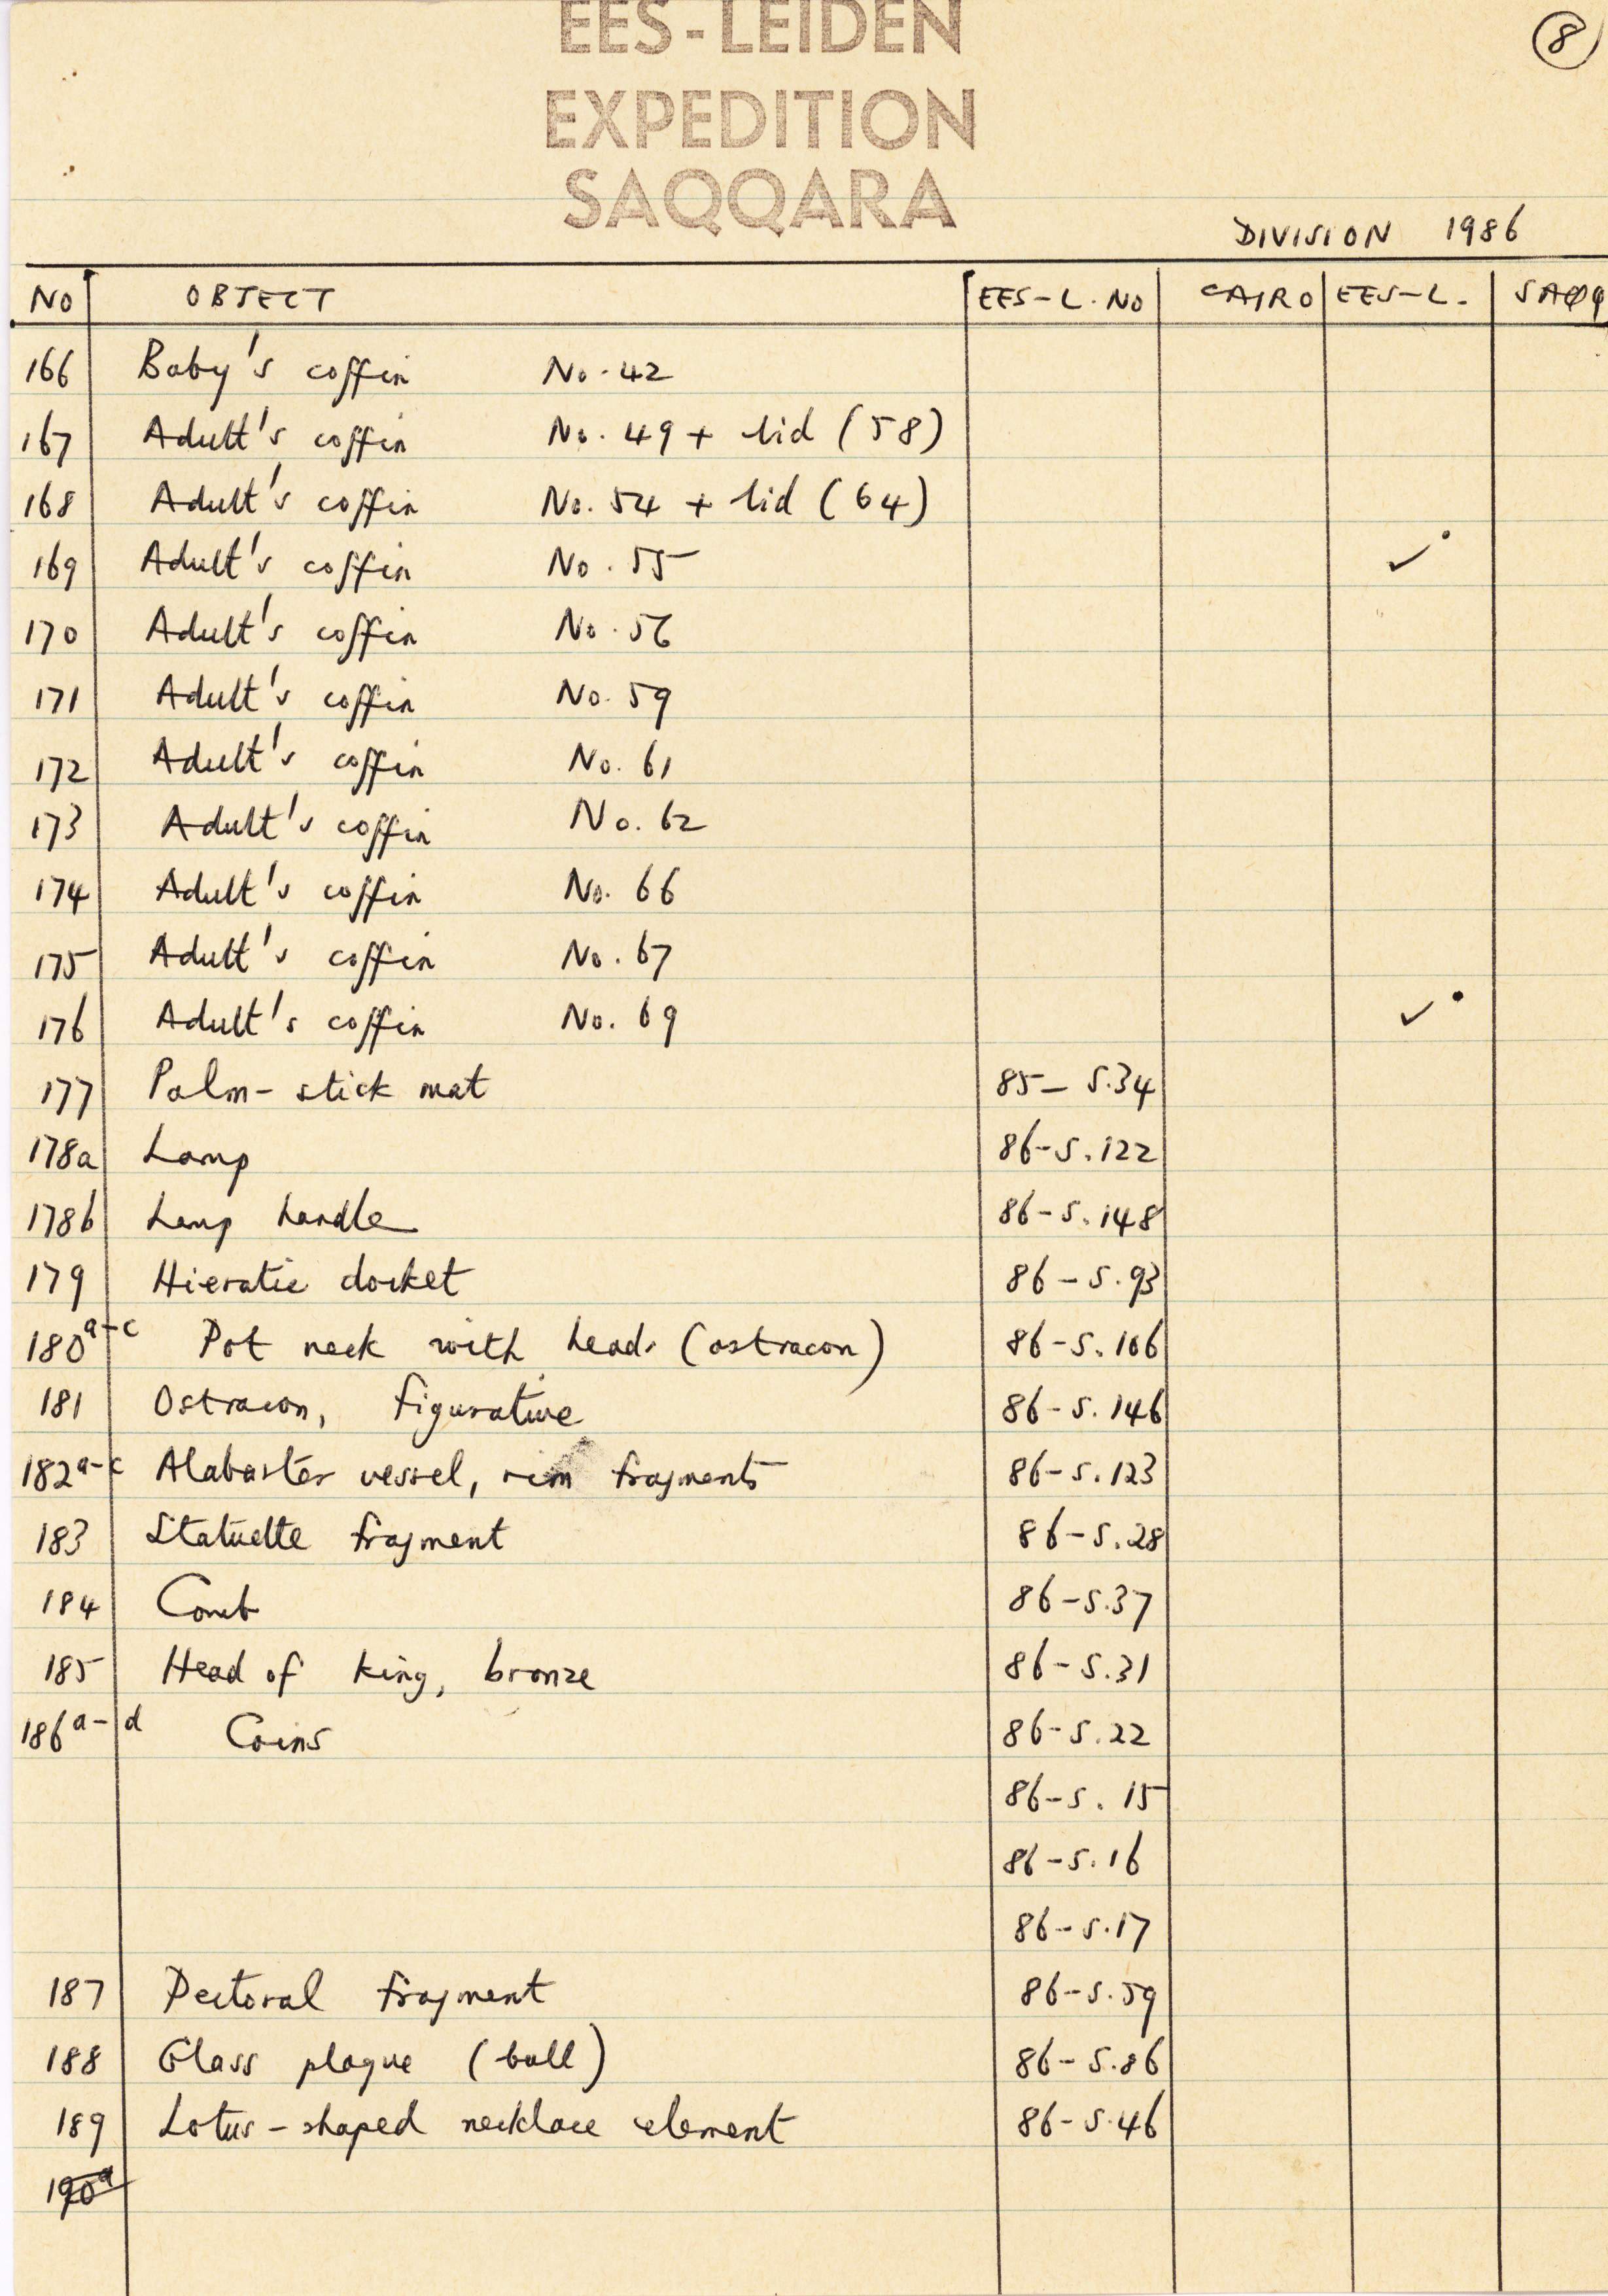 EES-LEIDEN
EXPEDITION
SAQQARA
8
DIVISION 1986
NO OBJECT EES-L. NO CAIRO EES-L. SAQQ
166 Baby's coffin No. 42
167 Adult's coffin No. 49 + lid (58)
168 Adult's coffin No. 54 + lid (64)
169 Adult's coffin No. 55 ✓
170 Adult's coffin No. 56
171 Adult's coffin No. 59
172 Adult's coffin No. 61
173 Adult's coffin No. 62
174 Adult's coffin No. 66
175 Adult's coffin No. 67
176 Adult's coffin No. 69 ✓
177 Palm-stick mat 85-S.34
178a Lamp 86-S.122
178b Lamp handle 86-S.148
179 Hieratic docket 86-S.93
180a-c Pot neck with heads (ostracon) 86-S.106
181 Ostracon, figurative 86-S.146
182a-c Alabaster vessel, rim fragments 86-S.123
183 Statuette fragment 86-S.28
184 Comb 86-S.37
185 Head of king, bronze 86-S.31
186a-d Coins 86-S.22
86-S.15
86-S.16
86-S.17
187 Pectoral fragment 86-S.59
188 Glass plaque (bull) 86-S.86
189 Lotus-shaped necklace element 86-S.46
190a